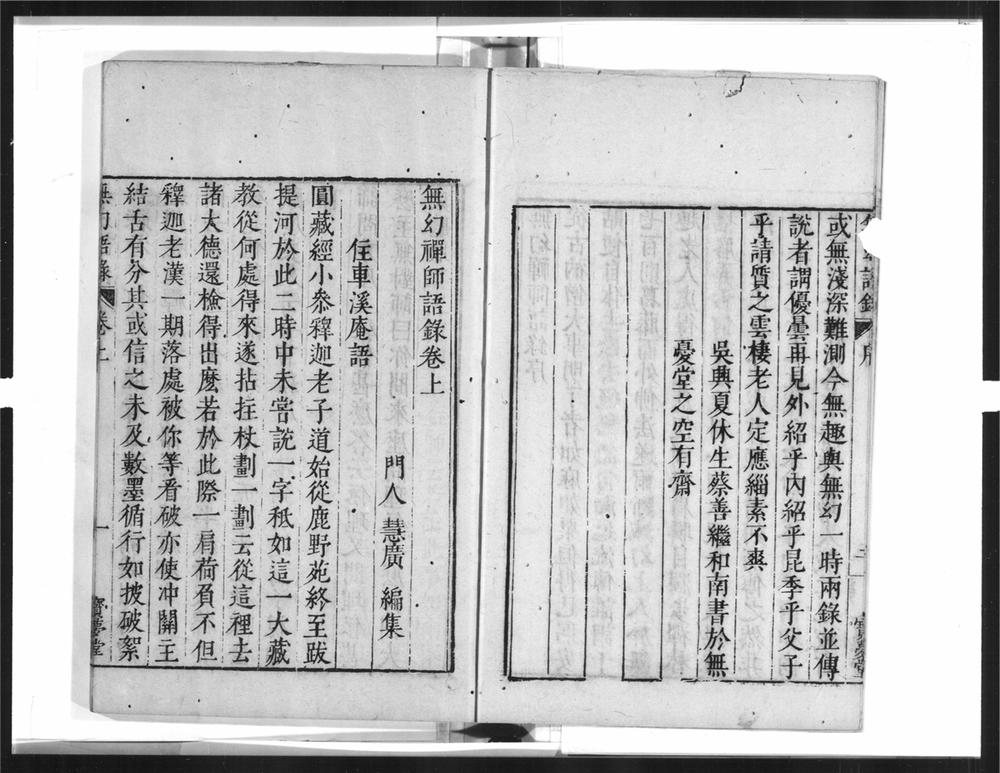 或無淺深難測今無趣與無幻一時兩錄並傳
說者謂優曇再見外紹乎內紹乎昆季乎父子
乎請質之雲棲老人定應緇素不爽
吳興夏休生蔡善繼和南書於無
憂堂之空有齋
無幻禪師語錄卷上
門人慧廣編集
住車溪庵語
圓藏經小叅釋迦老子道始從鹿野苑終至跋
提河於此二時中未甞說一字秪如這一大藏
教從何處得來遂拈拄杖劃一劃云從這裡去
諸大德還檢得出麽若於此際一肩荷負不但
釋迦老漢一期落處被你等看破亦使冲關主
結舌有分其或信之未及數墨循行如披破絮
無幻語錄 卷上 一